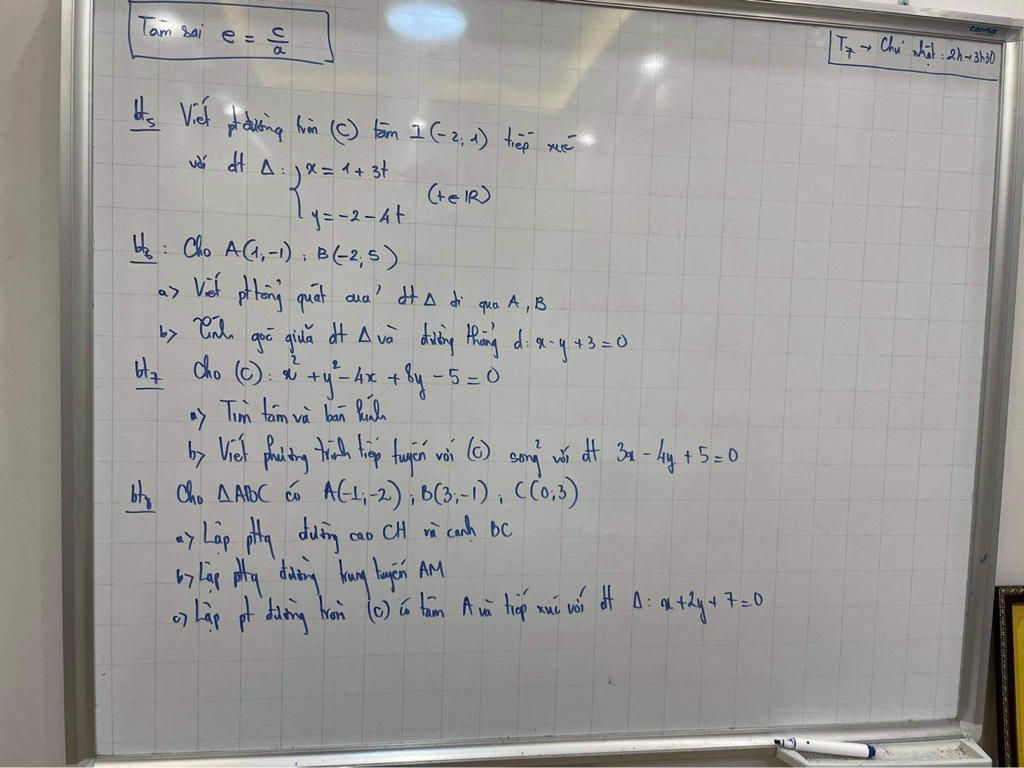 Tâm sai e = c/a
T7 → Chủ nhật: 2h → 3h30
bt5 Viết pt đường tròn (C) tâm I(-2; 1) tiếp xúc
với đt Δ: { x = 1 + 3t
y = -2 - 4t (t ∈ IR)
bt6: Cho A(1; -1); B(-2; 5)
a> Viết pt tổng quát của đt Δ đi qua A, B
b> Tính góc giữa đt Δ và đường thẳng d: x - y + 3 = 0
bt7 Cho (C): x² + y² - 4x + 8y - 5 = 0
a> Tìm tâm và bán kính
b> Viết phương trình tiếp tuyến với (C) song² với đt 3x - 4y + 5 = 0
bt8 Cho ΔABC có A(-1; -2); B(3; -1); C(0; 3)
a> Lập pttq đường cao CH và cạnh BC
b> Lập pttq đường trung tuyến AM
c> Lập pt đường tròn (C) có tâm A và tiếp xúc với đt Δ: x + 2y + 7 = 0